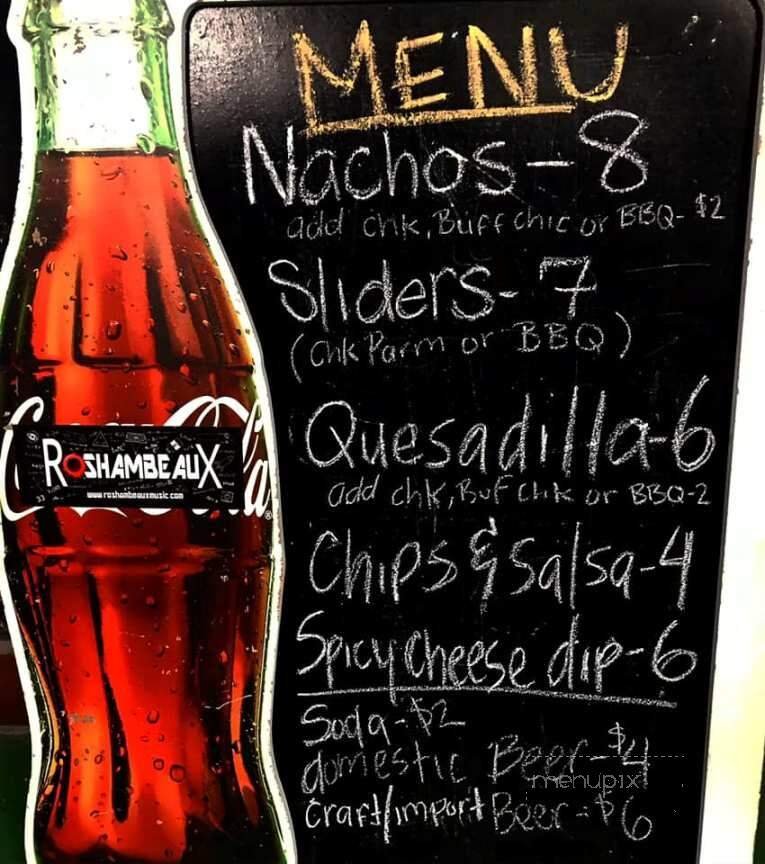 MENU
Nachos - 8
add chk, Buff chic or BBQ- $2
Sliders- 7
(chk Parm or BBQ)
Quesadilla-6
add chk, Buf chk or BBQ-2
Chips & Salsa-4
Spicy cheese dip-6
Soda-$2
domestic Beer-$4
craft/import Beer-$6
Coca-Cola
ROSHAMBEAUX
www.roshambeauxmusic.com
menupix